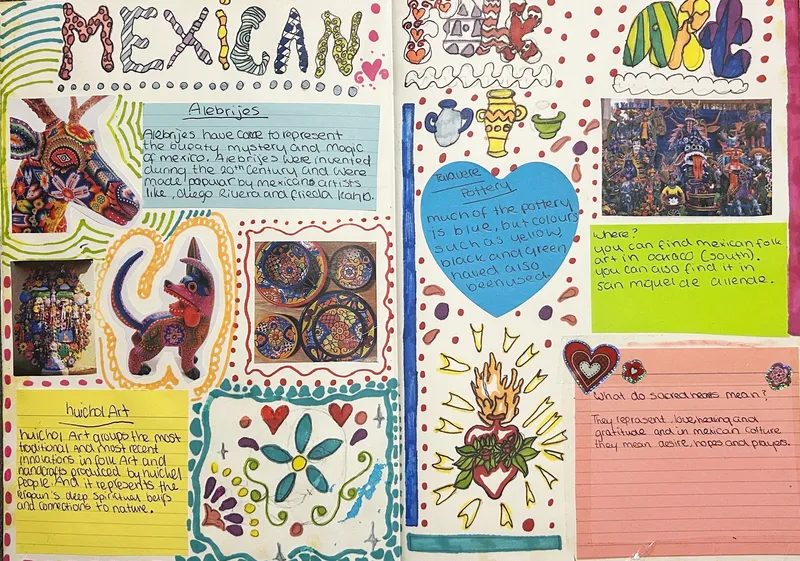 MEXICAN FOLK ART
Alebrijes
Alebrijes have come to represent
the bueaty, mystery and magic
of mexico. Alebrijes were invented
during the 20th century and were
made popular by mexicans artists
like, diego Rivera and frieda Kahp.
huichol Art
huichol Art groups the most
traditional and most recent
innovations in folk Art and
handcrafts produced by huichel
people. And it represents the
reigoun's deep spiritual beifs
and connections to nature.
Talavere
Pottery
much of the pottery
is blue, but colours
such as yellow,
black and green
haved also
been used.
where?
you can find mexican folk
art in oaxaco (south).
you can also find it in
san miguel de allende.
What do sacred hearts mean?
They represent love, healing and
gratitude and in mexican culture
they mean desire, hopes and prayers.